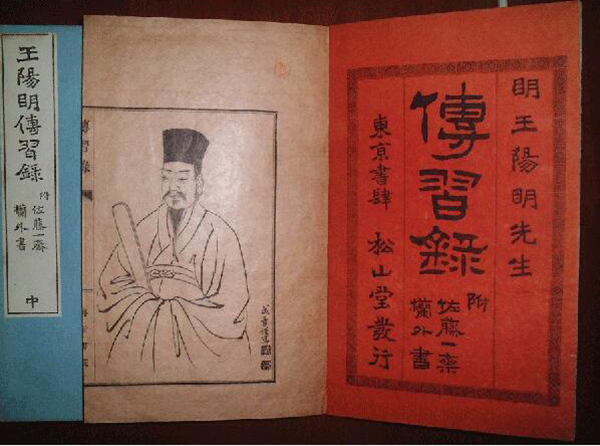 明王陽明先生
傳習錄
附
佐藤一齋
欄外書
東京書肆 松山堂發行
傳習錄
王陽明傳習錄
附
佐藤一齋
欄外書
中